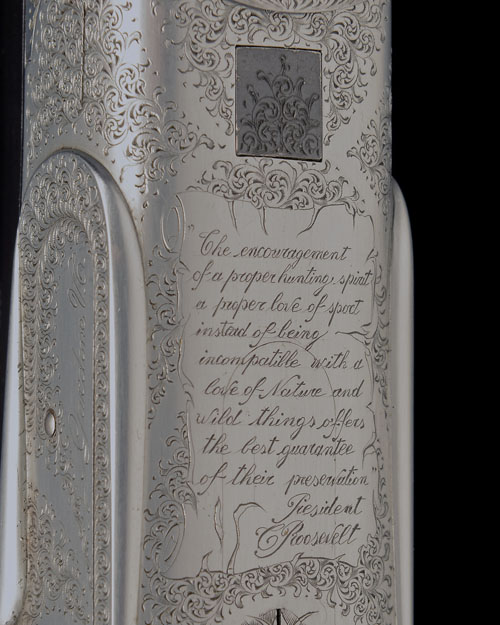 The encouragement
of a proper hunting, spirit
a proper love of sport
instead of being
incompatible with a
love of Nature and
wild things, offers
the best guarantee
of their preservation
President
T Roosevelt